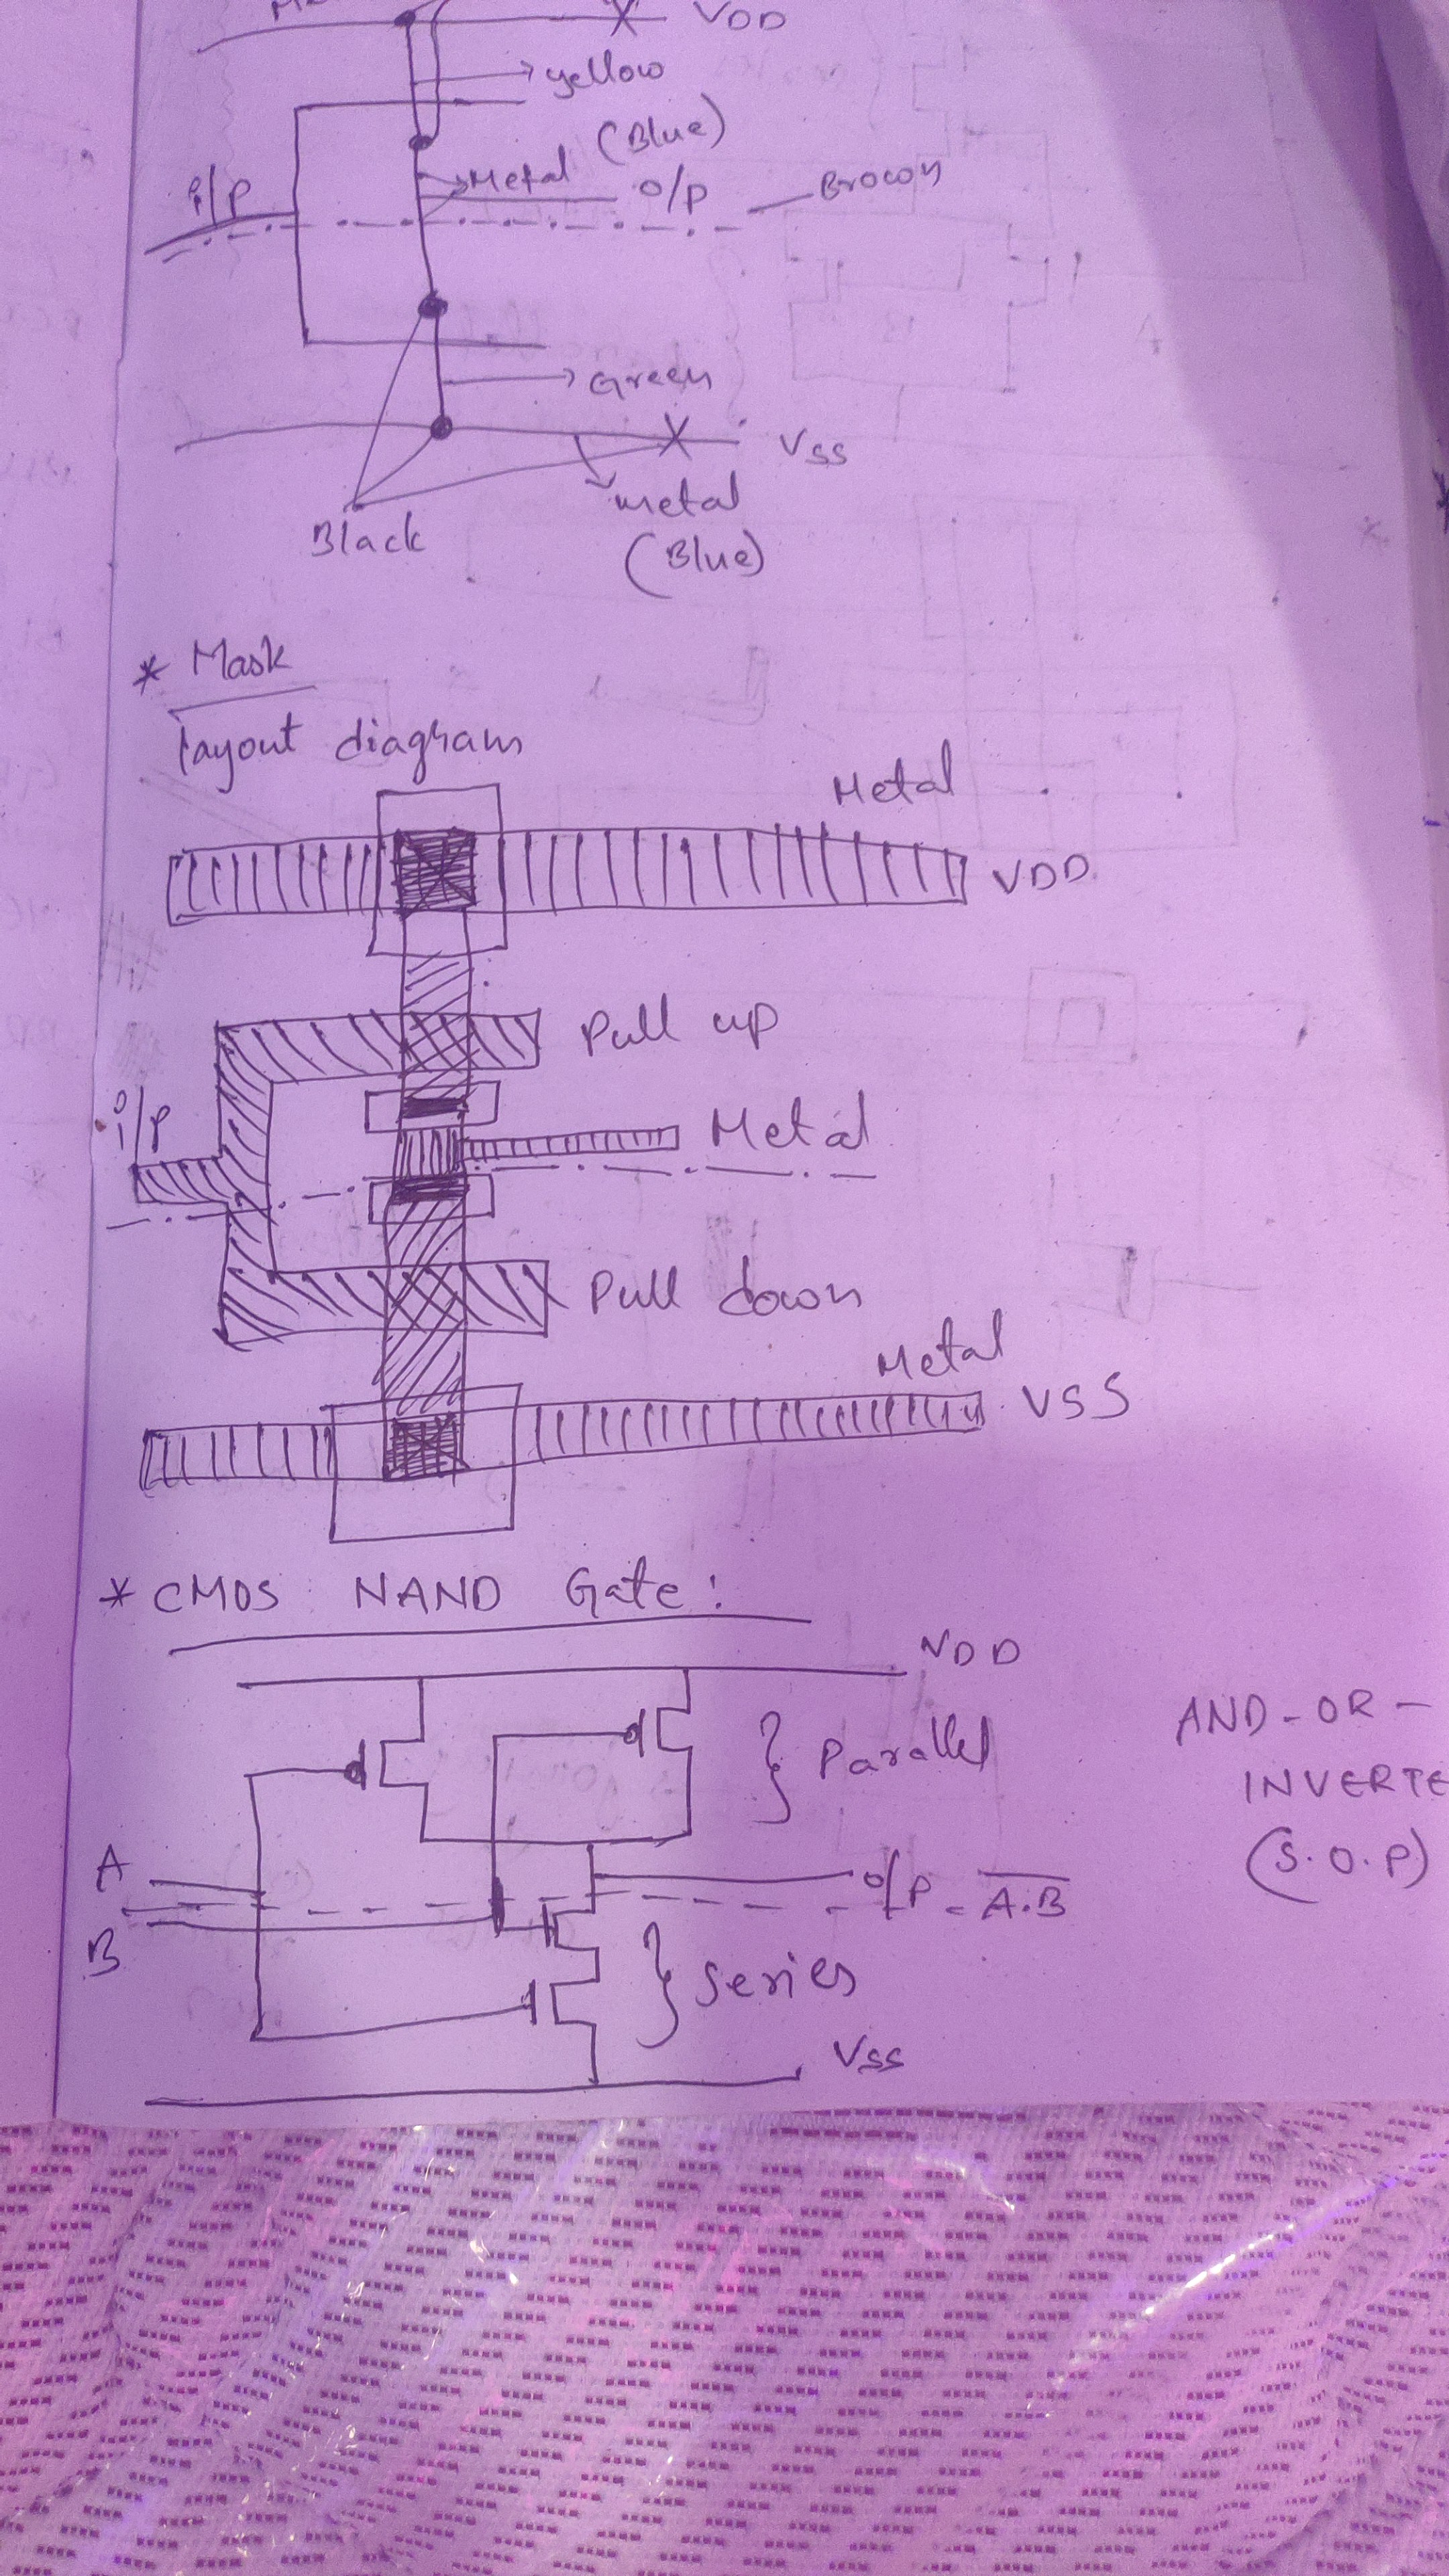 VDD
yellow
Metal (Blue)
i/p
o/p
Brown
Green
VSS
metal
(Blue)
Black
* Mask
layout diagram
Metal
VDD
Pull up
i/p
Metal
Pull down
Metal
VSS
* CMOS NAND Gate:
VDD
Parallel
AND-OR-
INVERTE
(S.O.P)
A
o/p = A.B
B
Series
VSS